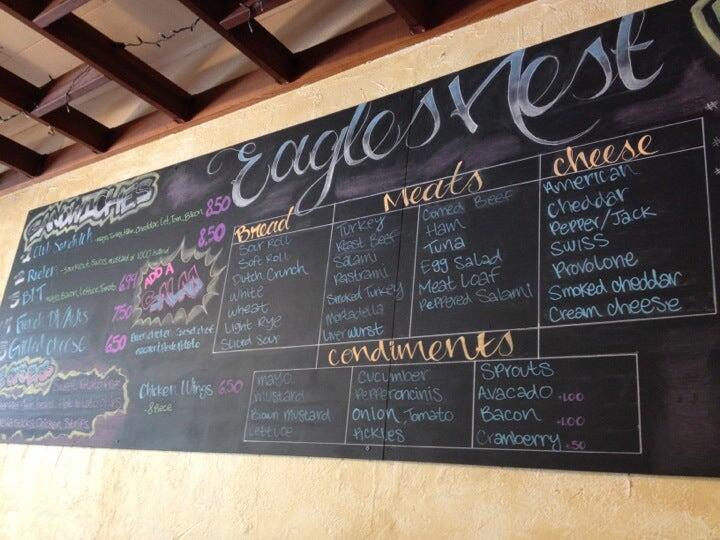 Eagles Nest
SANDWICHES
Club Sandwich - Mayo, Turkey, Ham, Cheddar, Let, Tom, Bacon 8.50
8.50
BLT - Mayo, Bacon, Lettuce, Tomato 6.99
French Dip/Au Jus 7.50
Grilled Cheese 6.50
ADD A SALAD
Chicken Wings 6.50
- 8 Piece
Bread
Sour Roll
Soft Roll
Dutch Crunch
White
Wheat
Light Rye
Sliced Sour
Meats
Turkey
Roast Beef
Salami
Pastrami
Smoked Turkey
Mortadella
Liverwurst
Corned Beef
Ham
Tuna
Egg Salad
Meat Loaf
Peppered Salami
cheese
American
Cheddar
Pepper/Jack
SWISS
Provolone
Smoked cheddar
Cream cheese
condiments
Mayo
Mustard
Brown Mustard
Lettuce
Cucumber
Pepperoncinis
Onion, Tomato
Pickles
Sprouts
Avacado +1.00
Bacon +1.00
Cranberry +.50